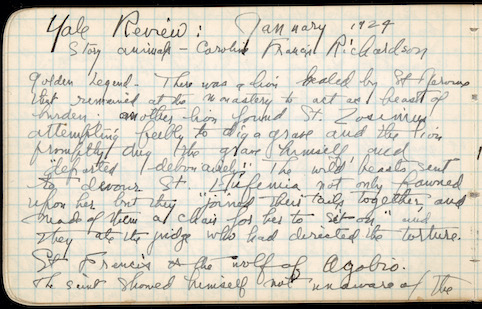 Yale Review: January 1924
Story animals – Caroline Francis Richardson
Golden Legend – There was a lion healed by St. Jerome
that remained at the monastery to act as beast of
burden. another lion found St. Zosimus
attempting feebly to dig a grave and the lion
promptly dug the grave himself and
"departed debonairely". The wild beasts sent
to devour St. Eufemia not only fawned
upon her but they "joined their tails together and
made of them a chair for her to sit on" and
they ate the judge who had directed the torture.
St Francis & the wolf of Agobio.
The saint showed himself not unaware of the